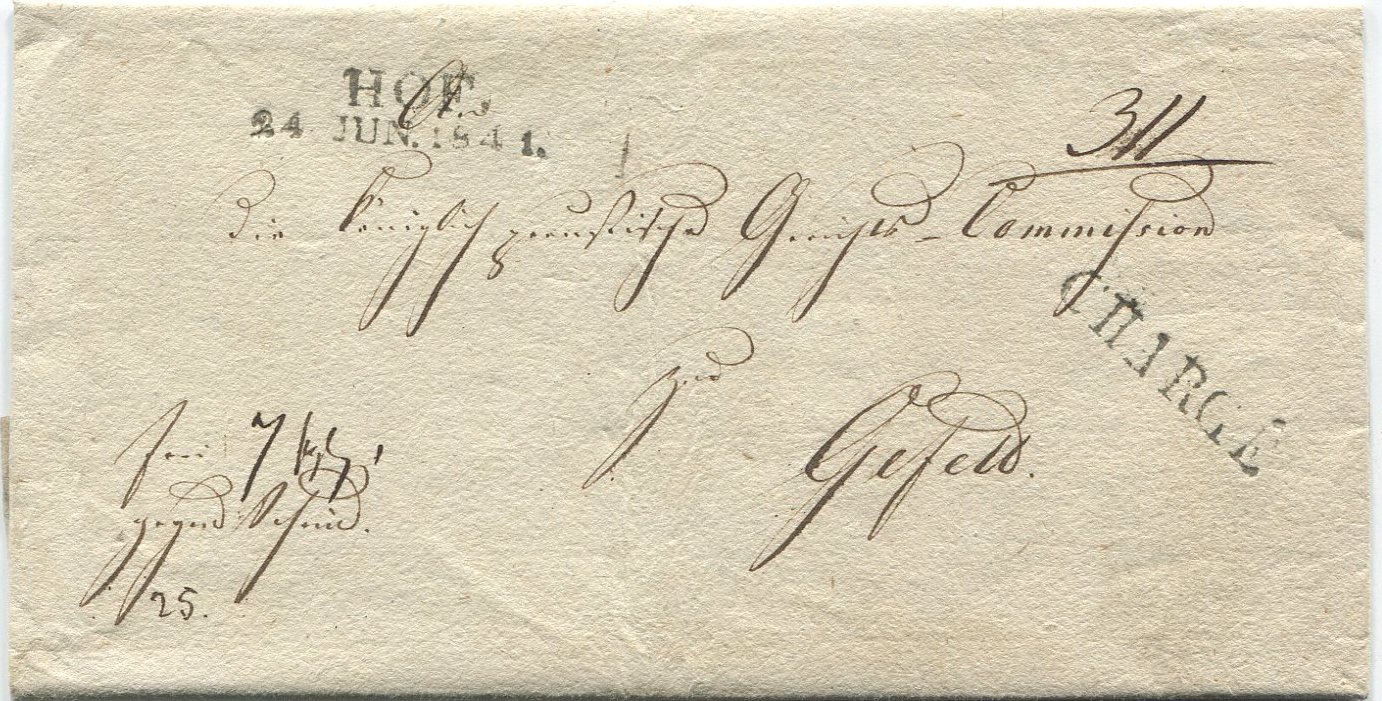 HOF.
24 JUN. 1841.
An
311
Die Königlich preußische Gerichts-Commission
CHARGÉ
zu
Gefell.
frei 7
gegen Schein.
25.